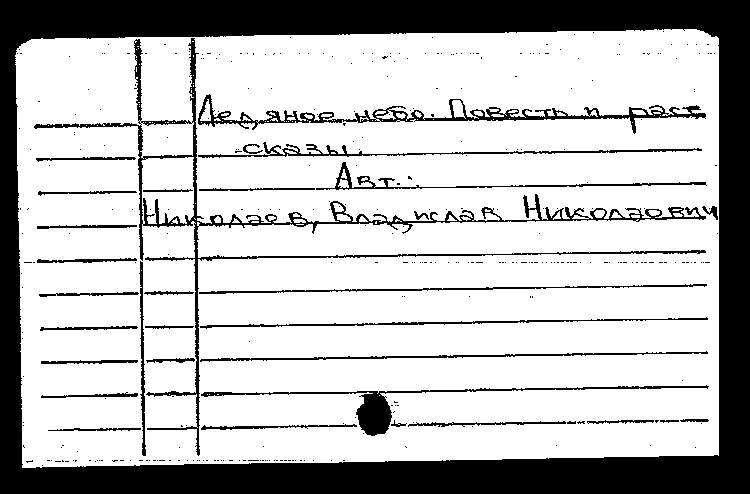 Ледяное небо. Повесть и расс
сказы.
Авт.:
Николаев, Владислав Николаевич